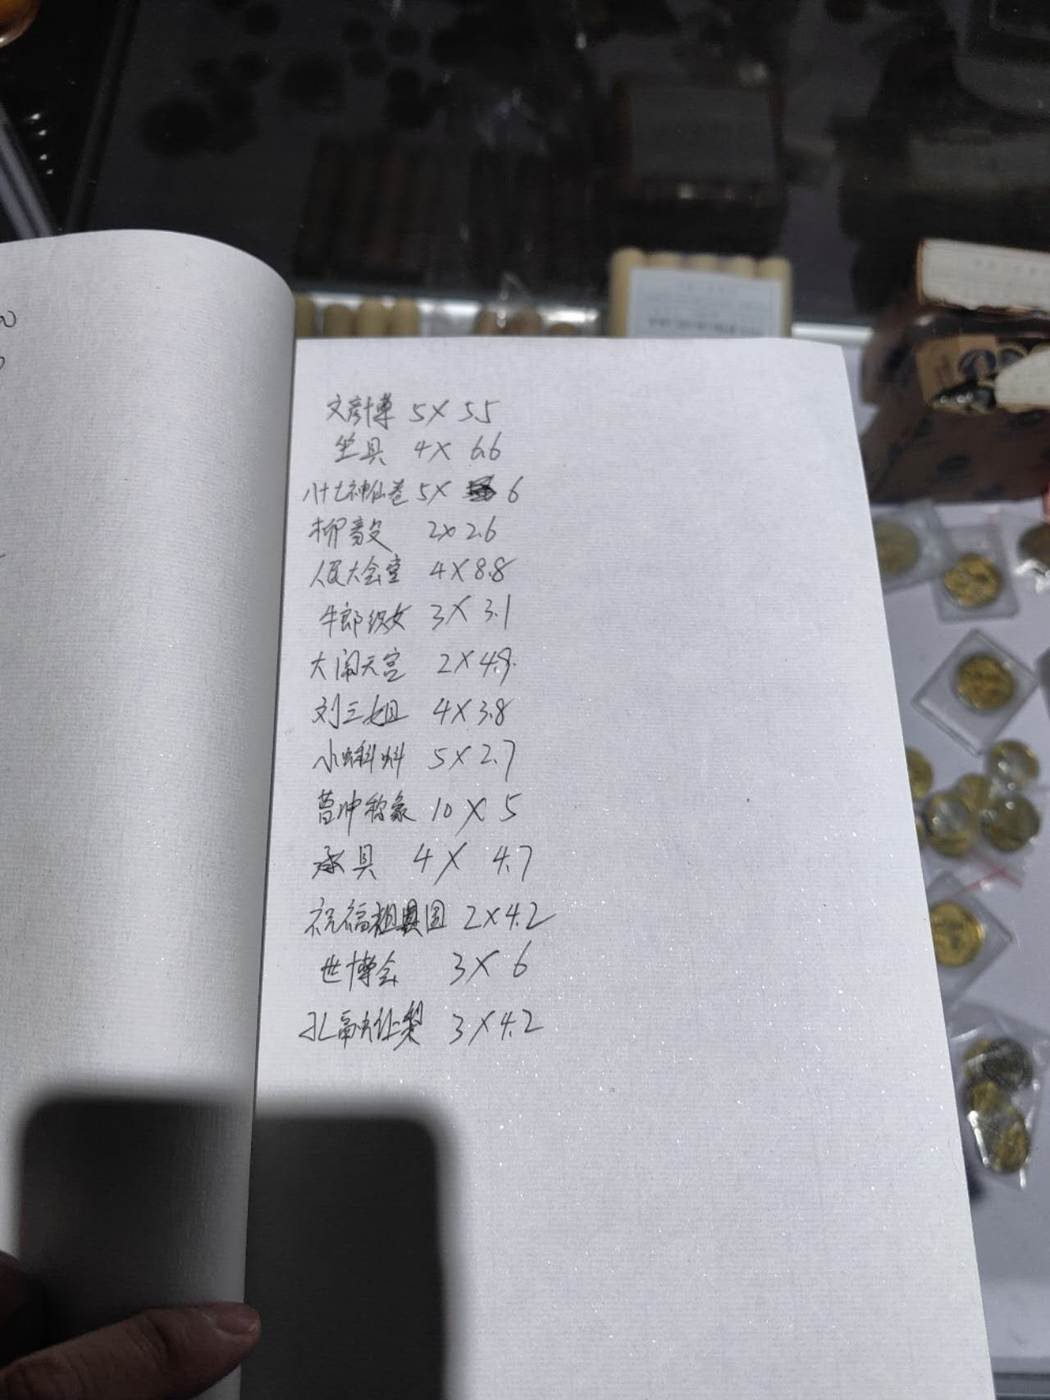 文彦博 5X 5.5
坐具 4X 6.6
八十七神仙卷 5X 6
柳毅 2x 2.6
人民大会堂 4X8.8
牛郎织女 3X 3.1
大闹天宫 2X4.9
刘三姐 4X3.8
小蝌蚪 5X2.7
曹冲称象 10X 5
承具 4X 4.7
祝福祖国 2X4.2
世博会 3X 6
孔融让梨 3X4.2